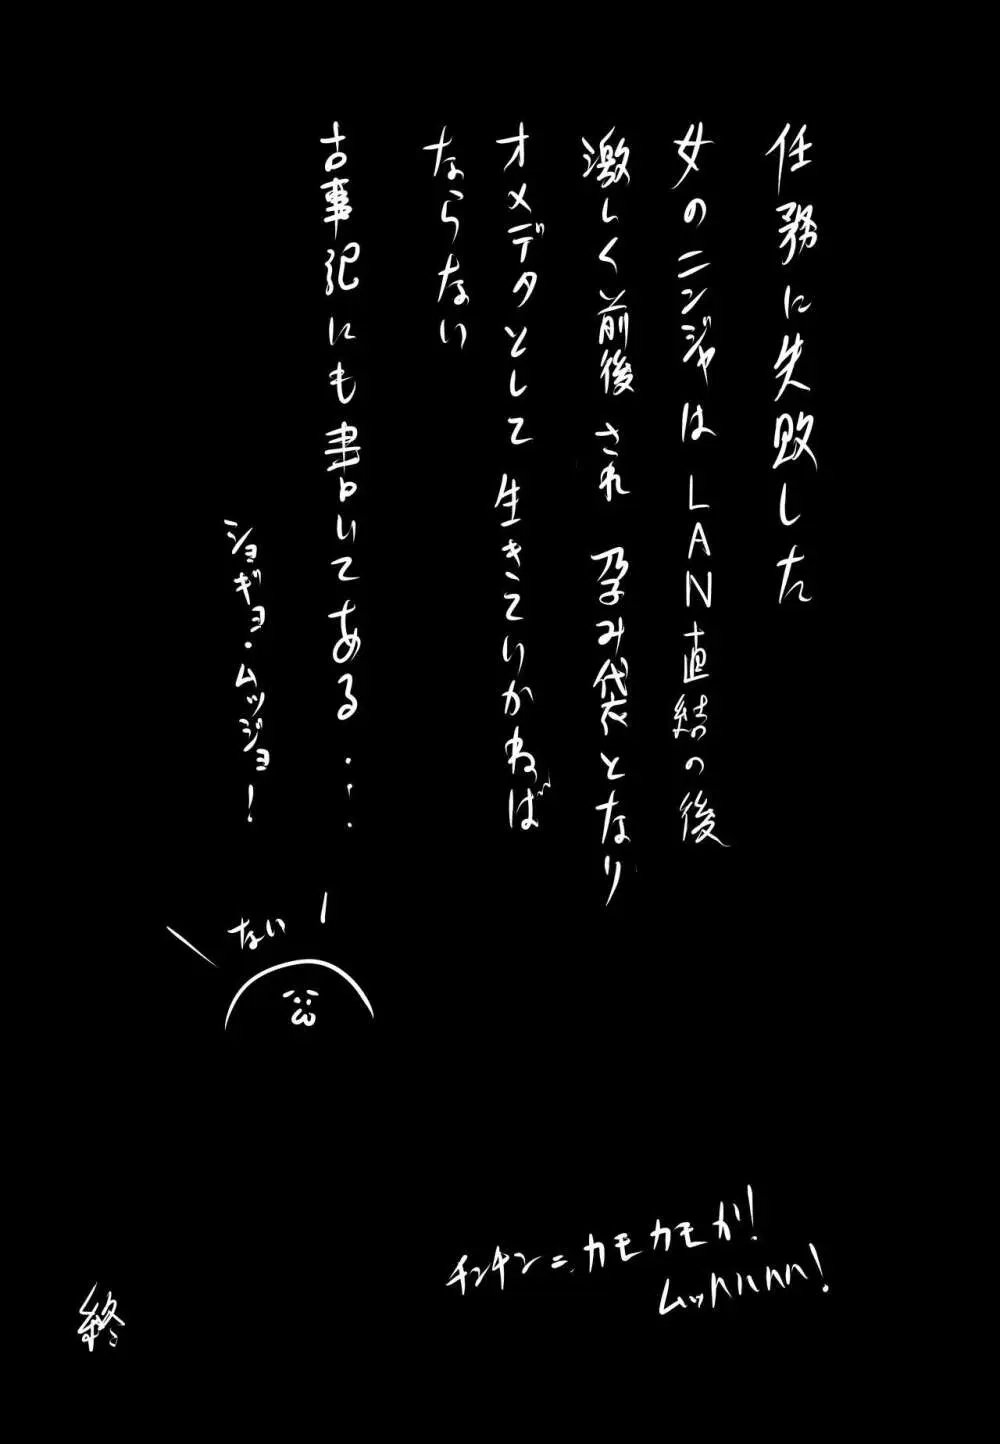 任務に失敗した
女のニンジャはLAN直結の後
激しく前後され 孕み袋となり
オメデタとして生きていかねば
ならない
古事記にも書いてある・・・
ショギョ・ムッジョ！
ない
カモカモが！
ムッハハハハ！
終